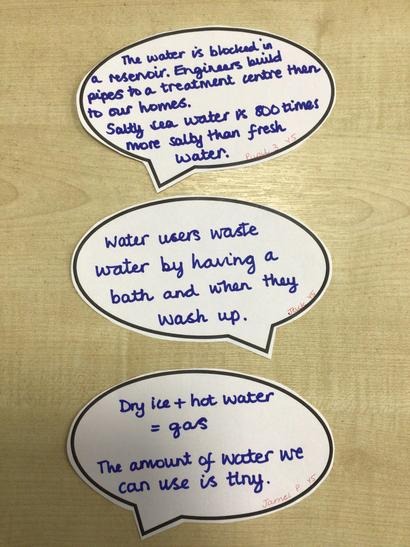 The water is blocked in
a reservoir. Engineers build
pipes to a treatment centre then
to our homes.
Salty sea water is 800 times
more salty than fresh
water.
Y5
Water users waste
water by having a
bath and when they
wash up.
Jack Y5
Dry ice + hot water
= gas
The amount of water we
can use is tiny.
James P Y5